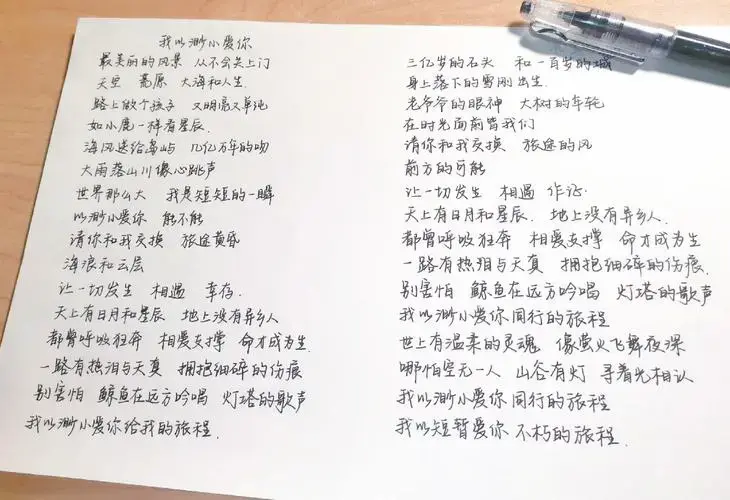 我以渺小爱你
最美丽的风景 从不会关上门
天空 高原 大海和人生.
路上做个孩子 又明亮又单纯
如小鹿一样看星辰.
海风送给岛屿 几亿万年的吻
大雨落山川像心跳声
世界那么大 我是短短的一瞬
以渺小爱你 能不能
请你和我交换 旅途黄昏
海浪和云层
让一切发生 相遇 幸存.
天上有日月和星辰 地上没有异乡人
都曾呼吸狂奔 相爱支撑 命才成为生.
一路有热泪与天真 拥抱细碎的伤痕
别害怕 鲸鱼在远方吟唱 灯塔的歌声
我以渺小爱你给我的旅程.
三亿岁的石头 和一百岁的城
身上落下的雪刚出生.
老爷爷的眼神 大树的年轮
在时光面前皆我们
请你和我交换 旅途的风
前方的可能
让一切发生 相遇 作证.
天上有日月和星辰. 地上没有异乡人.
都曾呼吸狂奔 相爱支撑 命才成为生
一路有热泪与天真 拥抱细碎的伤痕.
别害怕 鲸鱼在远方吟唱 灯塔的歌声
我以渺小爱你同行的旅程
世上有温柔的灵魂 像萤火飞舞夜深
哪怕空无一人 山谷有灯 寻着光相认
我以渺小爱你同行的旅程
我以短暂爱你 不朽的旅程.